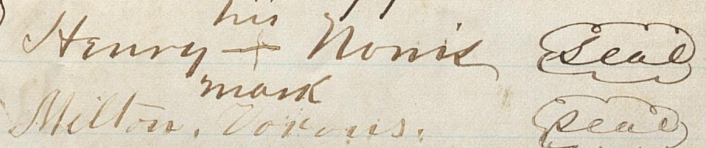 his
Henry + Norris seal
mark
Milton. seal